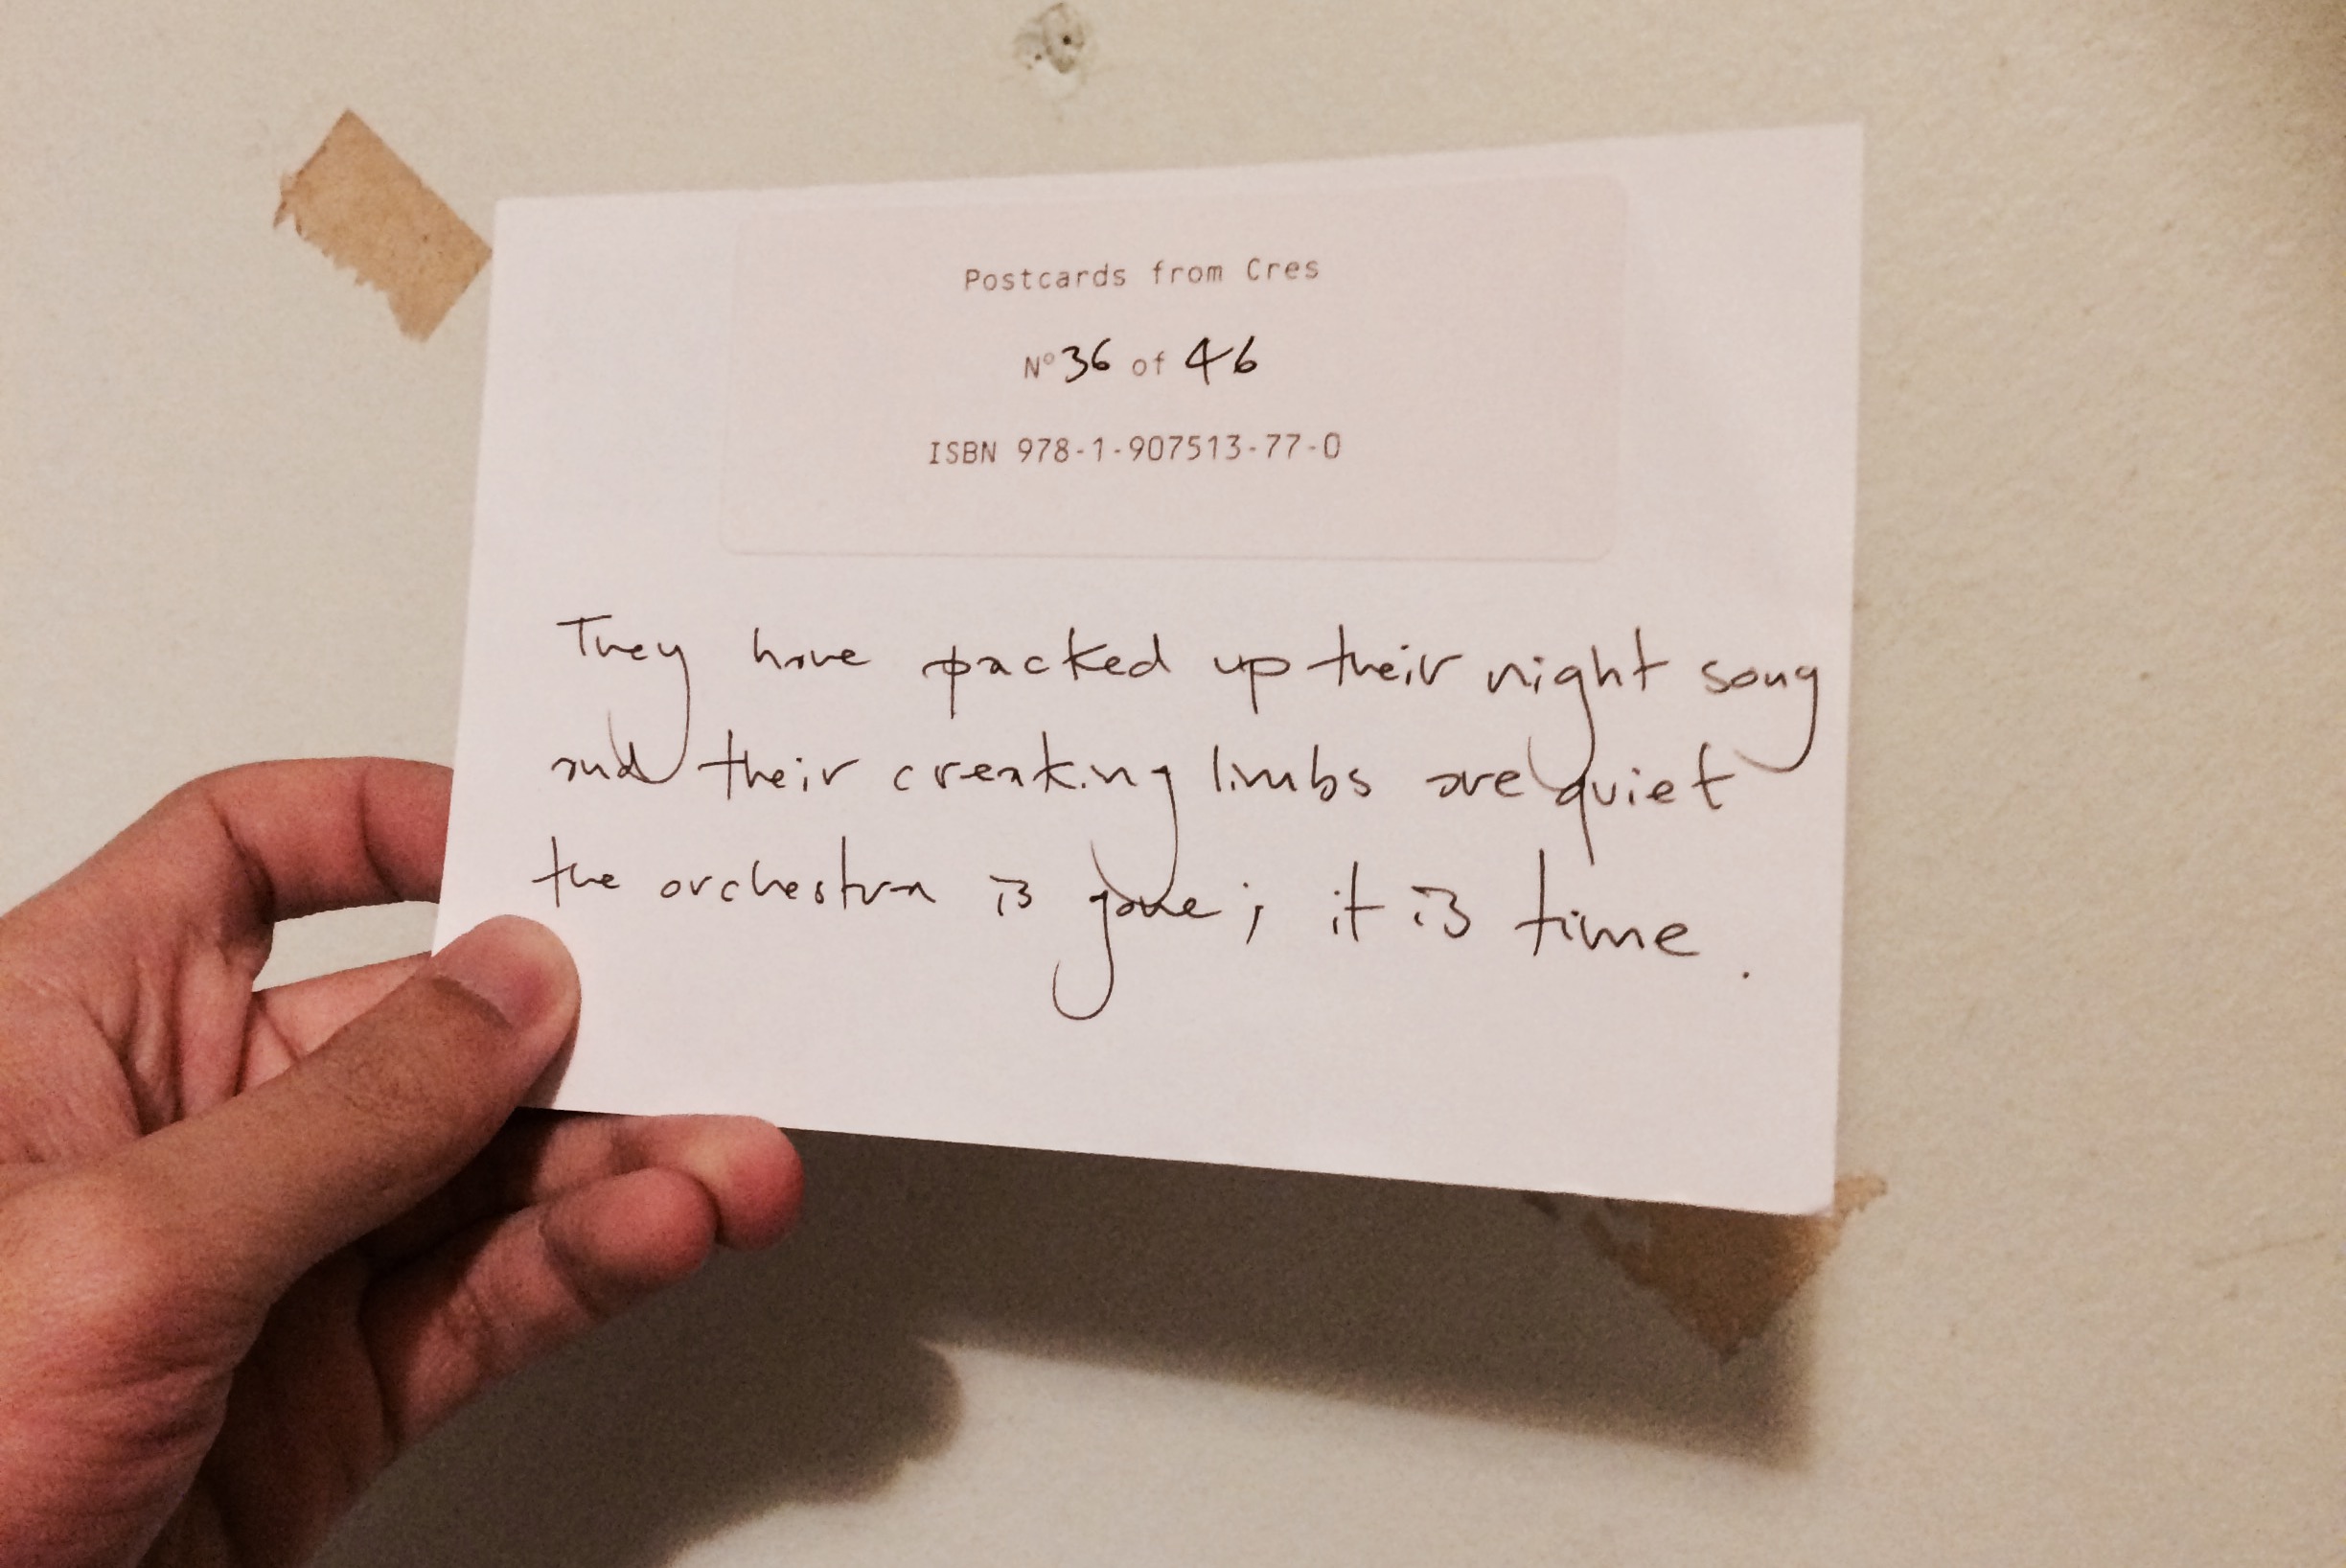 Postcards from Cres
Nº 36 of 46
ISBN 978-1-907513-77-0
They have packed up their night song
and their creaking limbs are quiet
the orchestra is gone; it is time.